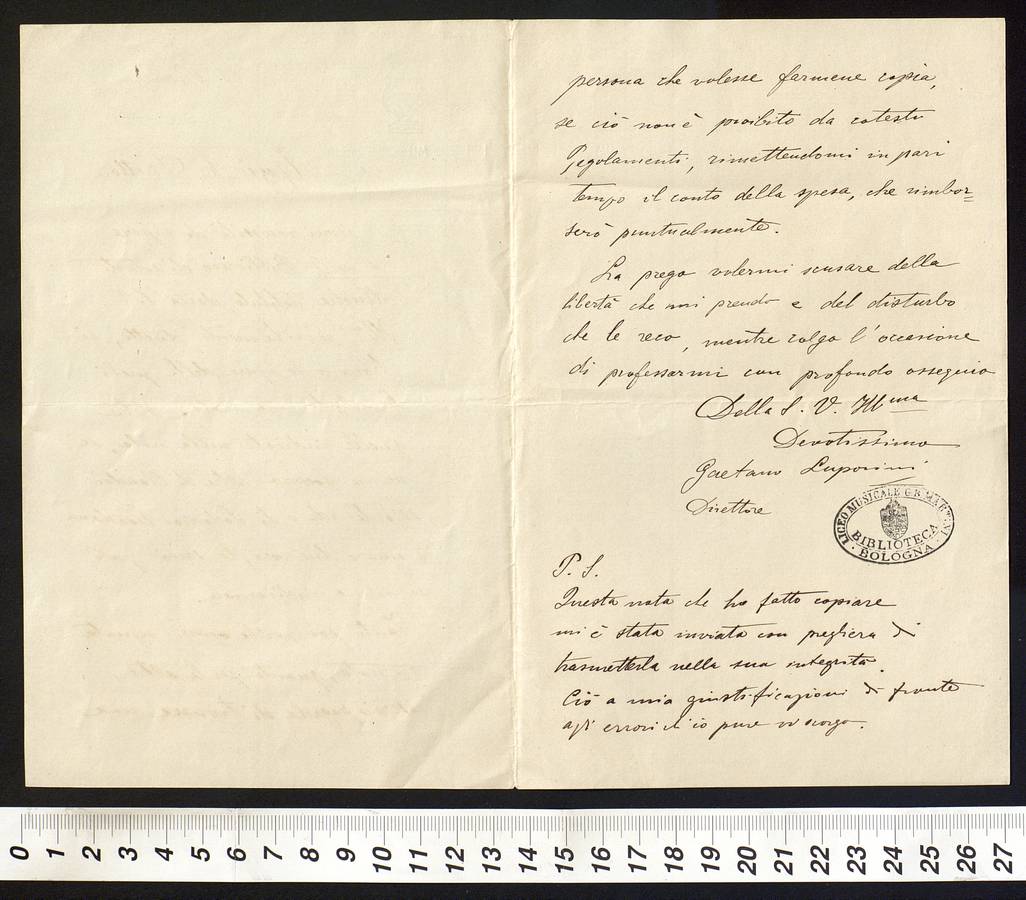 persona che volesse farmene copia,
se ciò non è proibito da cotesti
Regolamenti, rimettendomi in pari
tempo il conto della spesa, che rimbor=
serò puntualmente.
La prego volermi scusare della
libertà che mi prendo e del disturbo
che le reco, mentre colgo l'occasione
di professarmi con profondo ossequio
Della S. V. Ill.ma
Devotissimo
Gaetano Luporini
Direttore
LICEO MUSICALE G.B. MARTINI
BIBLIOTECA
· BOLOGNA ·
P. S.
Questa nota che ho fatto copiare
mi è stata inviata con preghiera di
trasmetterla nella sua integrità.
Ciò a mia giustificazioni di fronte
agli errori ch'io pure vi scorgo.
0 1 2 3 4 5 6 7 8 9 10 11 12 13 14 15 16 17 18 19 20 21 22 23 24 25 26 27